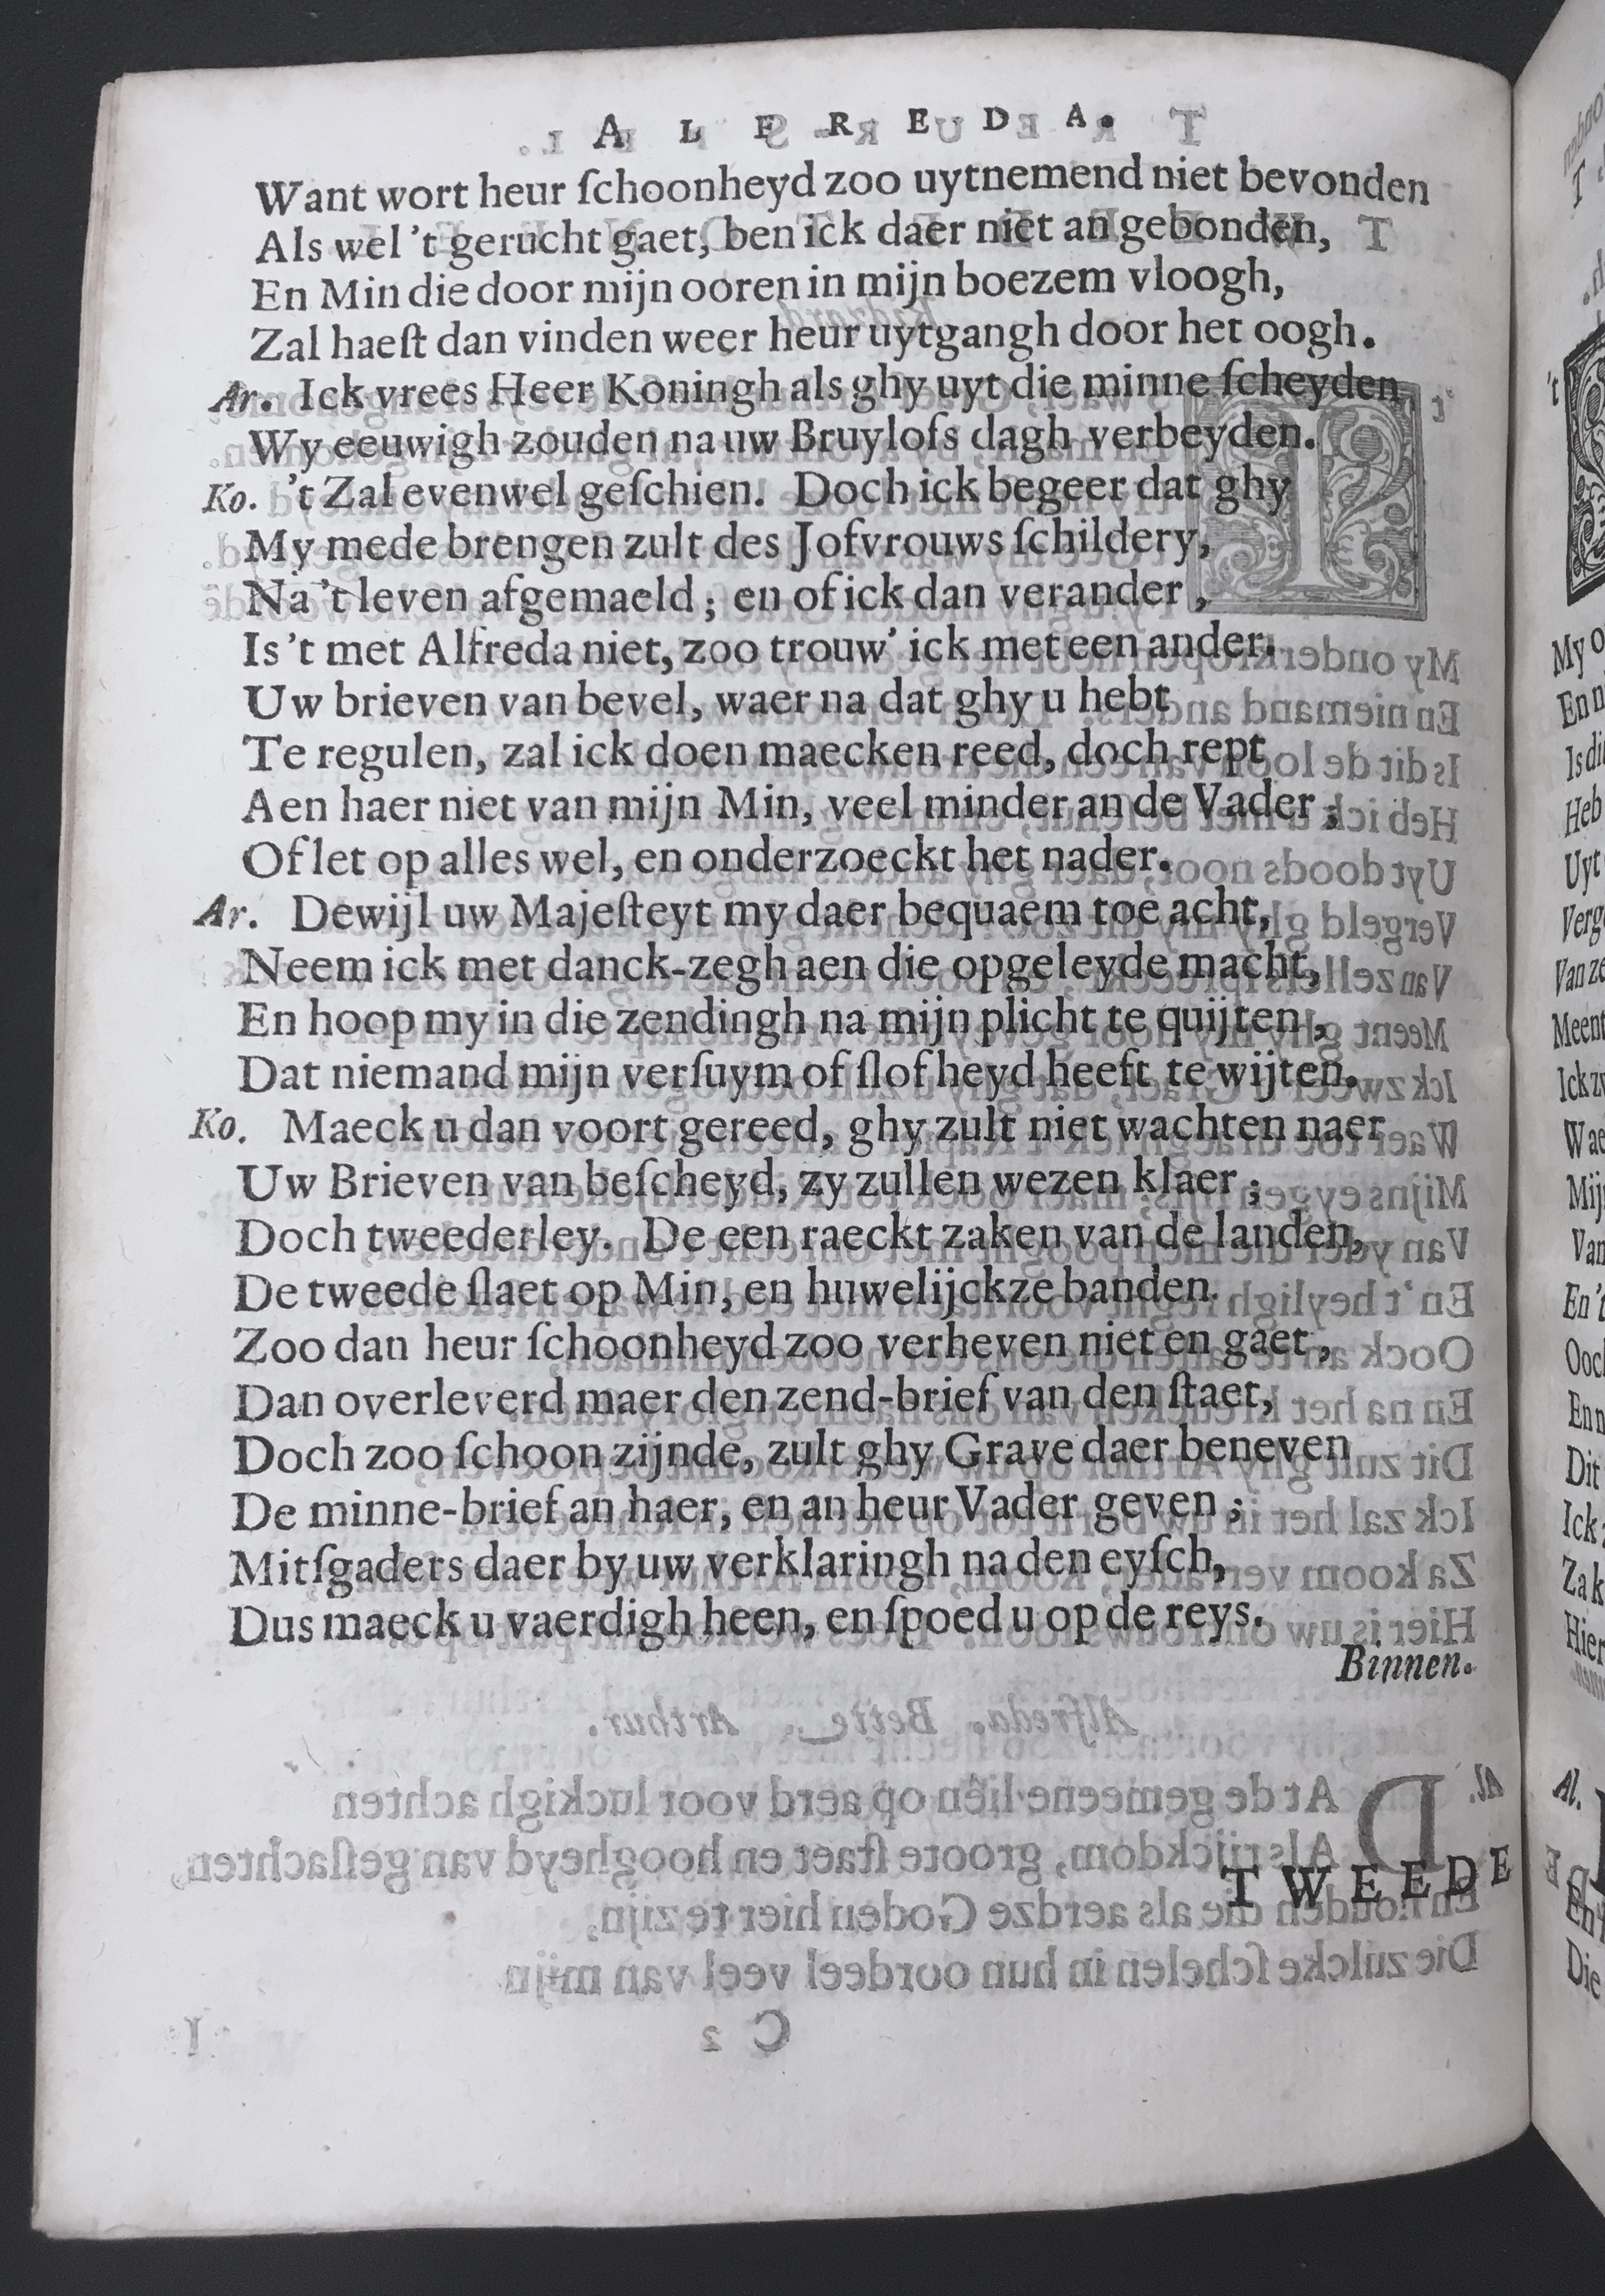 ALFREDA.
Want wort heur ſchoonheyd zoo uytnemend niet bevonden
Als wel 't gerucht gaet, ben ick daer niet an gebonden,
En Min die door mijn ooren in mijn boezem vloogh,
Zal haeſt dan vinden weer heur uytgangh door het oogh.
Ar. Ick vrees Heer Koningh als ghy uyt die minne ſcheyden,
Wy eeuwigh zouden na uw Bruylofs dagh verbeyden.
Ko. 't Zal evenwel geſchien. Doch ick begeer dat ghy
My mede brengen zult des Jofvrouws ſchildery,
Na 't leven afgemaeld; en of ick dan verander,
Is 't met Alfreda niet, zoo trouw' ick met een ander.
Uw brieven van bevel, waer na dat ghy u hebt
Te regulen, zal ick doen maecken reed, doch rept
Aen haer niet van mijn Min, veel minder an de Vader;
Of let op alles wel, en onderzoeckt het nader.
Ar. Dewijl uw Majeſteyt my daer bequaem toe acht,
Neem ick met danck-zegh aen die opgeleyde macht,
En hoop my in die zendingh na mijn plicht te quijten,
Dat niemand mijn verſuym of ſlofheyd heeft te wijten.
Ko. Maeck u dan voort gereed, ghy zult niet wachten naer
Uw Brieven van beſcheyd, zy zullen wezen klaer;
Doch tweederley. De een raeckt zaken van de landen,
De tweede ſlaet op Min, en huwelijckze banden.
Zoo dan heur ſchoonheyd zoo verheven niet en gaet,
Dan overleverd maer den zend-brief van den ſtaet,
Doch zoo ſchoon zijnde, zult ghy Grave daer beneven
De minne-brief an haer, en an heur Vader geven;
Mitſgaders daer by uw verklaringh na den eyſch,
Dus maeck u vaerdigh heen, en ſpoed u op de reys.
Binnen.
TWEEDE